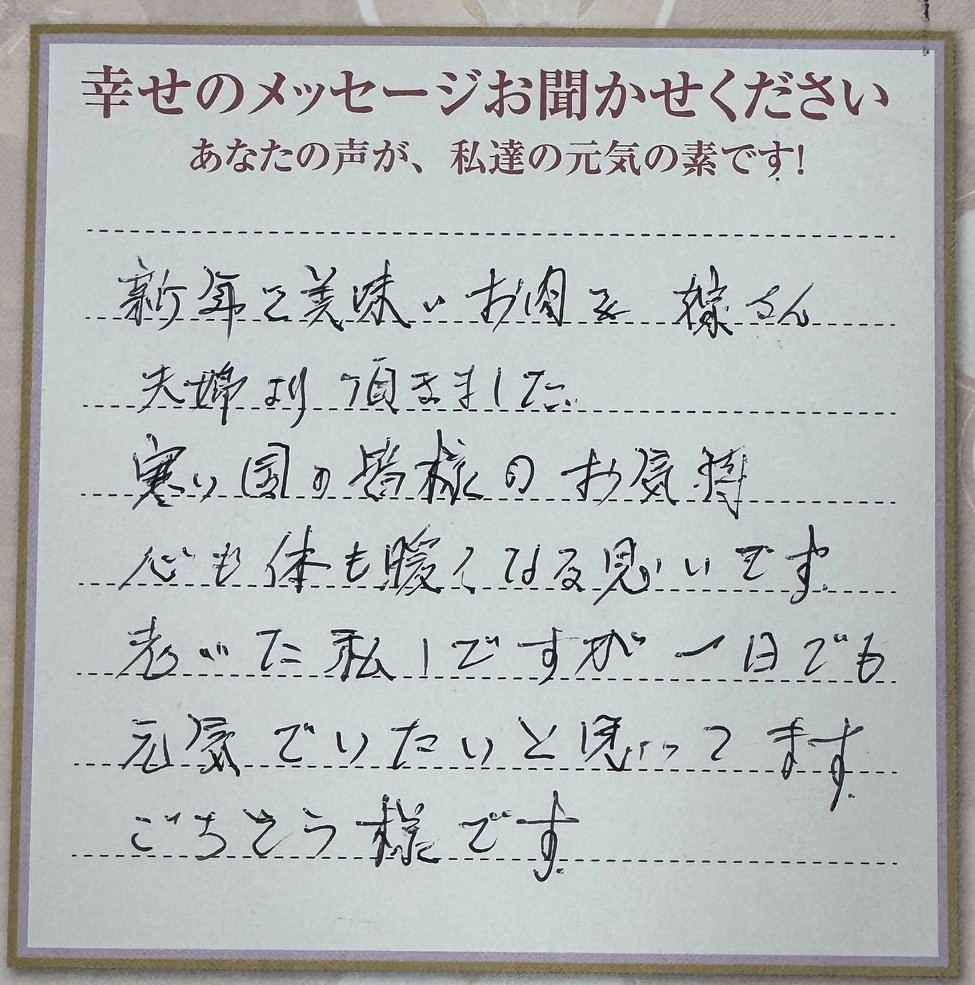 幸せのメッセージお聞かせください
あなたの声が、私達の元気の素です!
新年に美味いお肉を嫁さん
夫婦より頂きました。
寒い国の皆様のお気持
心も体も暖くなる思いです。
老いた私しですが一日でも
元気でいたいと思ってます。
ごちそう様です。